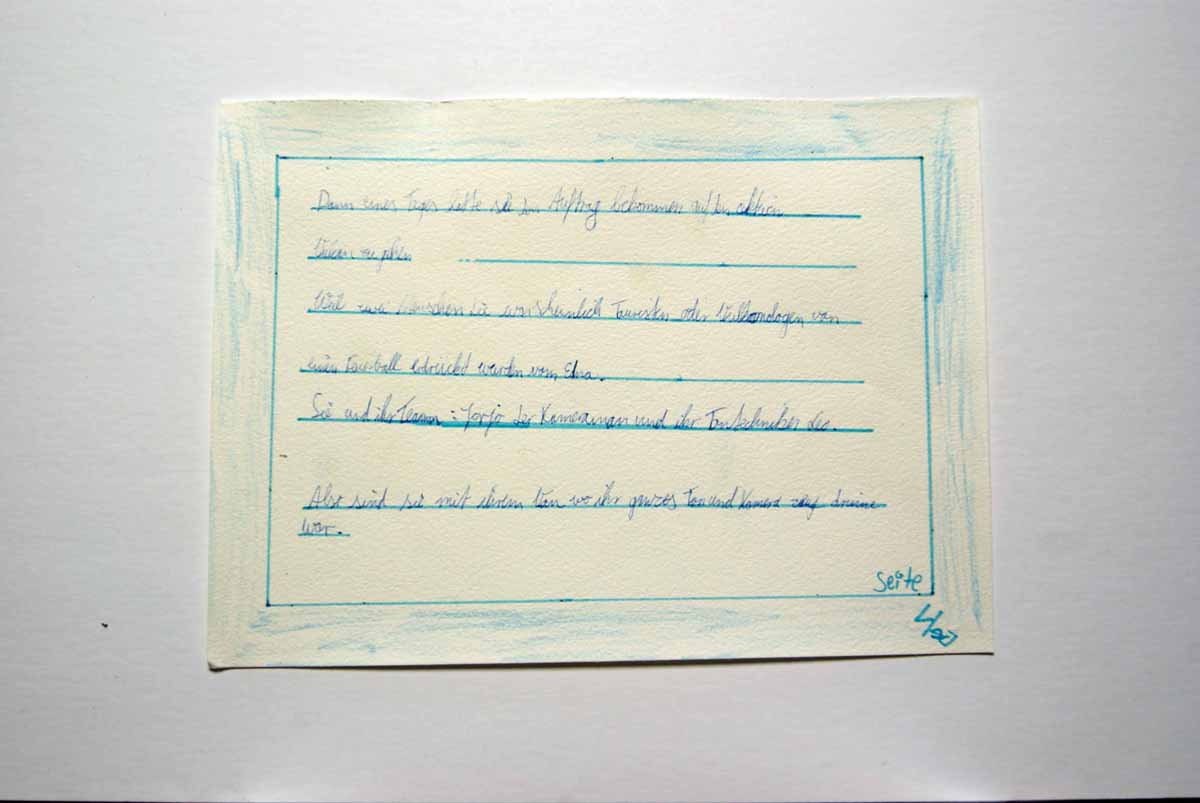 Dann eines Tages hatte sie den Auftrag bekommen auf den aktien
Vulkan zu gehen
Weil zwei Menschen die warscheinlich Touristen oder Vulkanologen von
einen Feuerball erdrückt wurden vom Etna.
Sie und ihr Team : Jorjo der Kameraman und ihr Tontechniker Leo.
Also sind sie mit ihrem Van wo ihr ganzes Ton und Kamera zeug drinne
war.
Seite